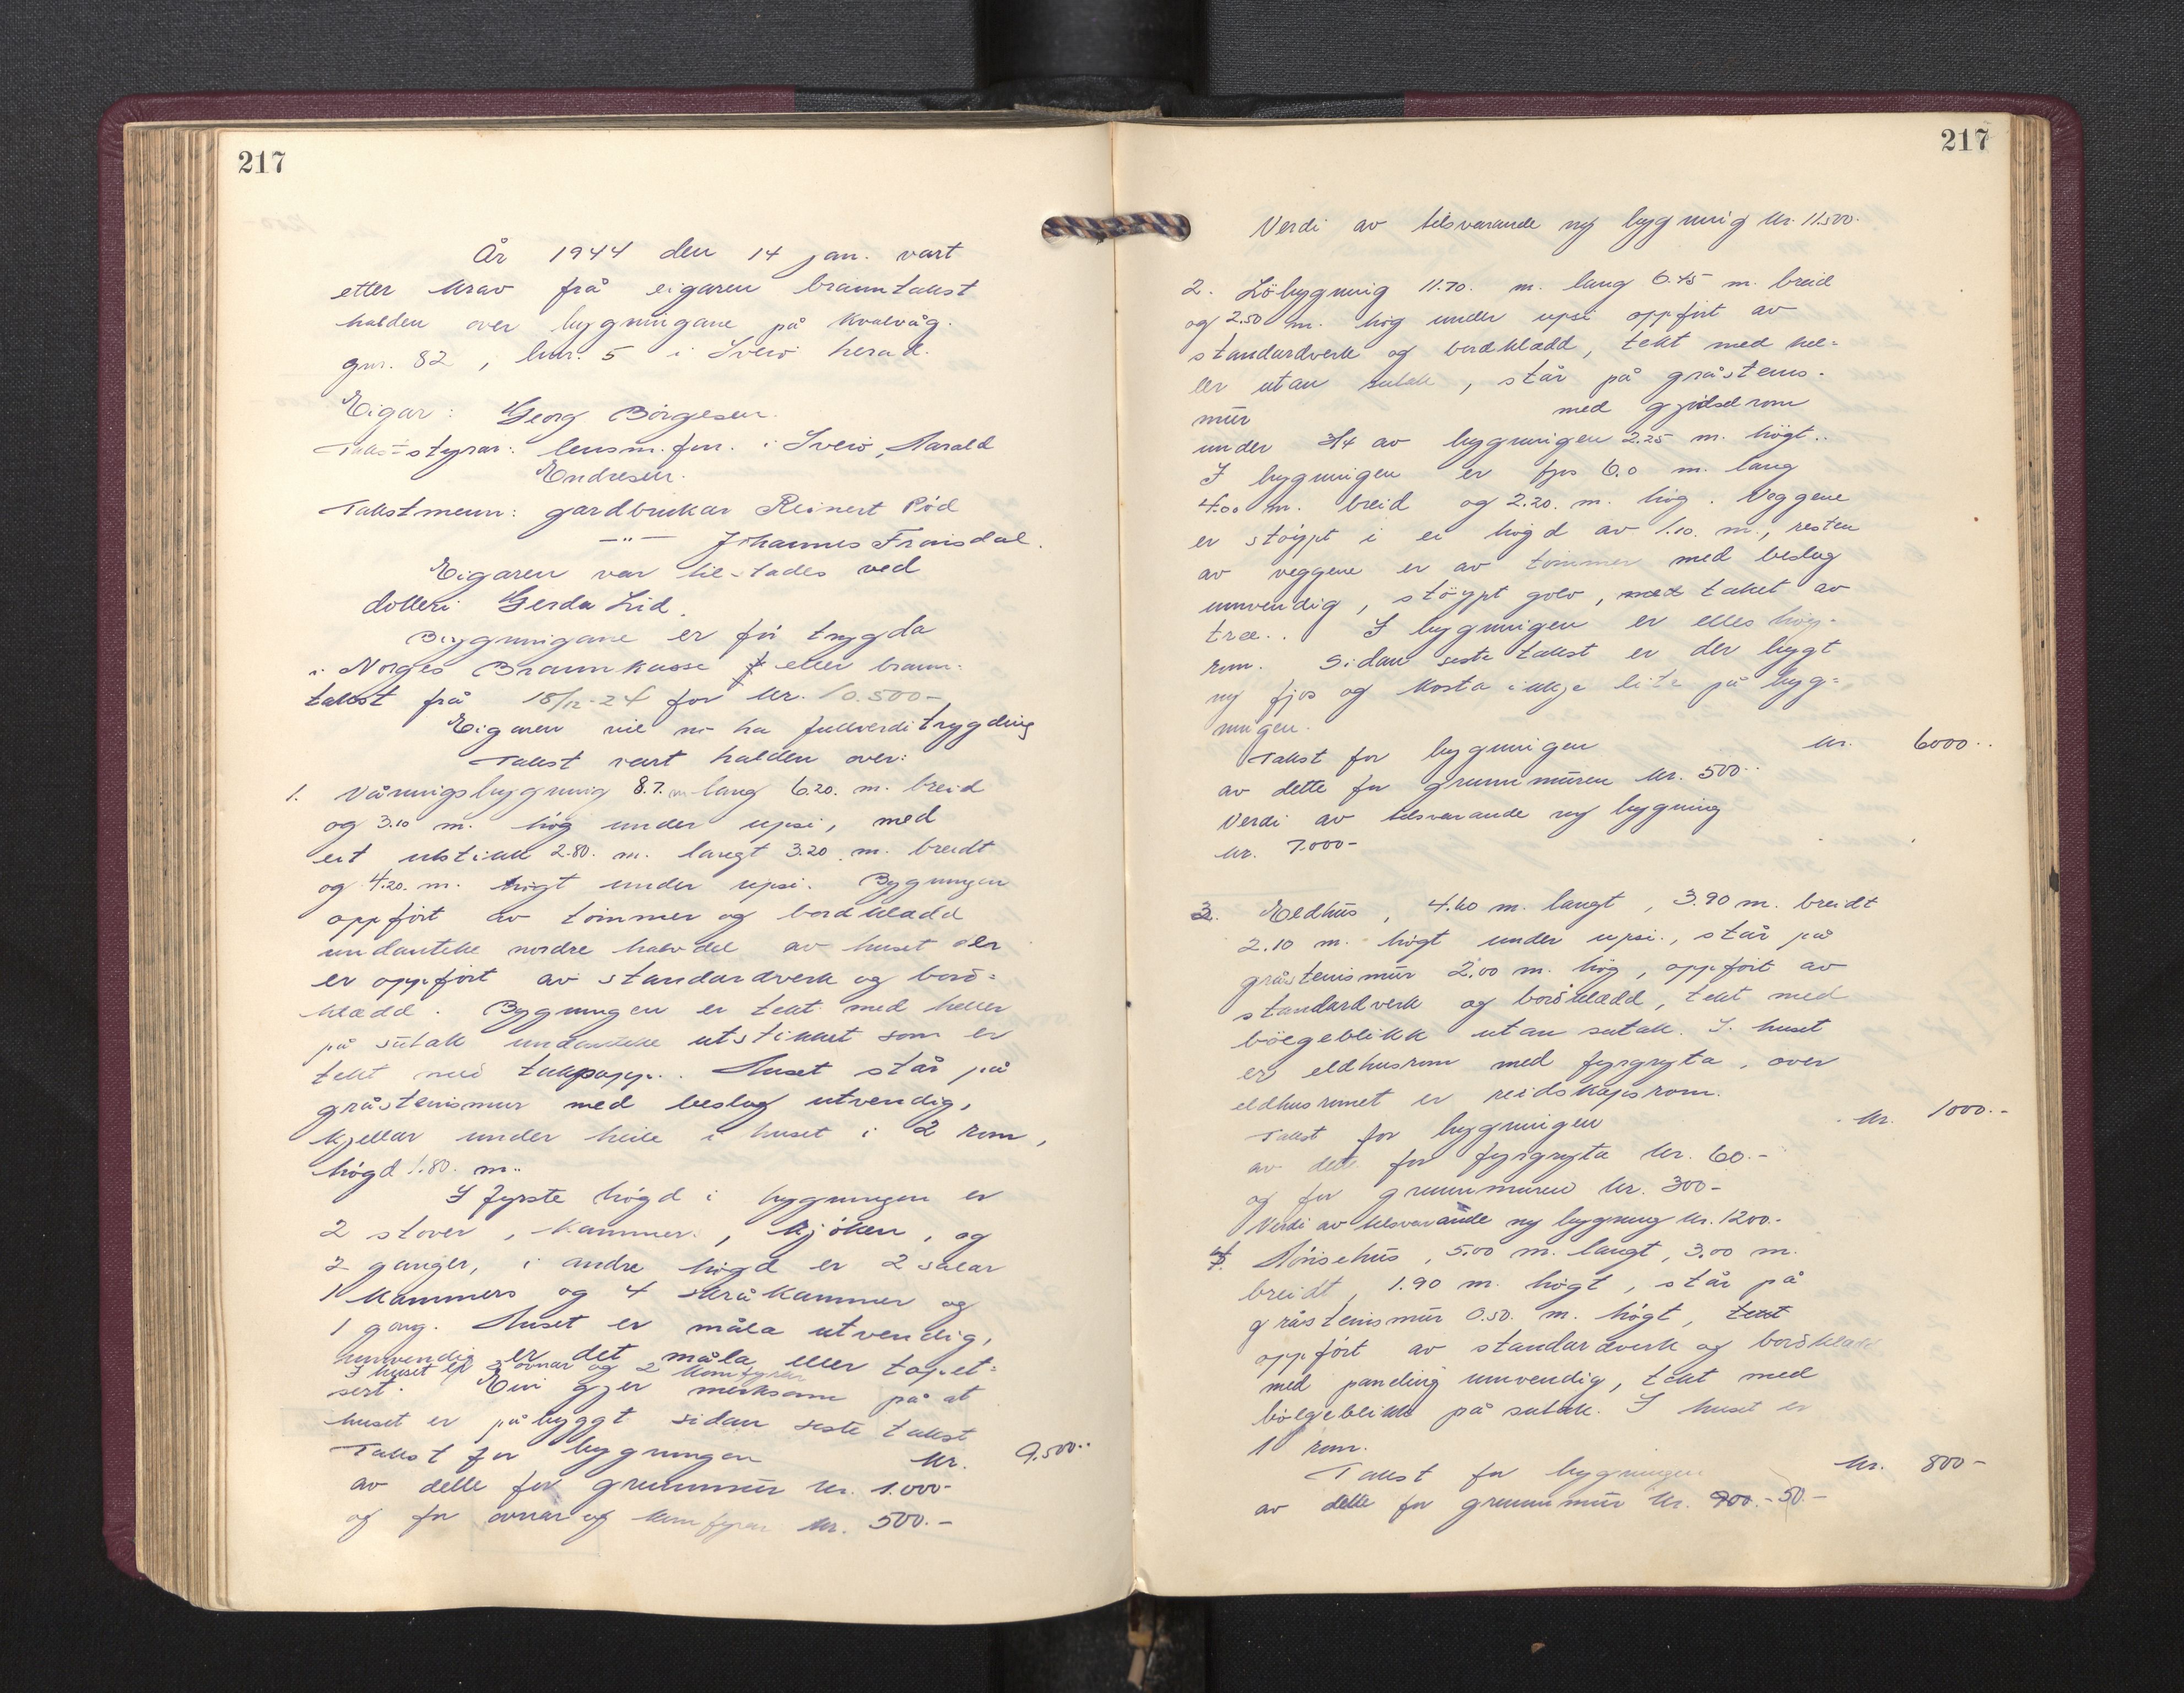 217
År 1944 den 14 jan. vart
etter krav frå eigaren branntakst
halden over bygningane på Kvalvåg.
gnr. 82, bnr. 5 i Sveio herad.
Eigar: Georg Børgesen.
Takststyrar: lensm.fm. i Sveio, Harald
Endresen.
Takstmenn: gardbrukar Reinert Rød
—"— Johannes Frønsdal.
Eigaren var til stades ved
dotteri Gerda Lid.
Bygningane er før trygda
i Norges Brannkasse etter brann-
takst frå 18/12-24 for kr. 10.500-
Eigaren vil no ha fullverditrygding
Takst vart halden over:
1. Våningsbygning 8.7. m lang 6.20. m. breid
og 3.10 m. høg under upsi, med
eit utstikk 2.80. m. langt 3.20. m. breidt
og 4.20. m. høgt under upsi. Bygningen
oppført av tømmer og bordkledd
undanteke nordre halvdel av huset der
er oppført av standardverk og bord-
kledd. Bygningen er tekt med heller
på sutak undanteke utstikket som er
tekt med takpapp. Huset står på
gråsteinsmur med beslag utvendig,
kjellar under heile huset i 2 rom,
høgd 1.80. m.
I fyrste høgd i bygningen er
2 stover, kammer, kjøken, og
2 ganger, i andre høgd er 2 salar
1 kammers og 4 skråkammer og
1 gang. Huset er måla utvendig,
innvendig er det måla eller tapet-
I huset er 3 ovnar og 2 komfyrar
sert. Ein gjer merksam på at
huset er påbyggt sidan siste takst
Takst for bygningen kr. 9.500..
av dette for grunnmur kr. 1.000-
og for ovnar og komfyrar kr. 500.-
217
Verdi av tilsvarande ny bygning kr. 11.500.
2. Løbygning 11.70. m. lang 6.45 m. breid
og 2.50 m. høg under upsi oppført av
standardverk og bordkledd, tekt med hel-
ler utan sutak, står på gråsteins-
mur med gjødselrom
under 3/4 av bygningen 2.25 m. høgt..
I bygningen er fjos 6.0 m. lang
4.00 m. breid og 2.20. m. høg. Veggene
er støypt i ei høgd av 1.10. m., resten
av veggene er av tømmer med beslag
innvendig, støypt golv, med taket av
tree.. I bygningen er elles høy-
rom. Sidan siste takst er der bygt
ny fjos og kosta ikkje lite på byg-
ningen.
Takst for bygningen kr. 6000..
av dette for grunnmuren kr. 500..
Verdi av tilsvarande ny bygning
kr. 7.000-
3. Eldhus, 4.60 m. langt, 3.90 m. breidt
2.10 m. høgt under upsi., står på
gråsteinsmur 2.00 m. høg, oppført av
standardverk og bordkledd, tekt med
bølgeblikk utan sutak. I huset
er eldhusrom med fyrgryta, over
eldhusrumet er reidskapsrom.
Takst for bygningen kr. 1000.-
av dette for fyrgryta kr. 60.-
og for grunnmuren kr. 300-
Verdi av tilsvarande ny bygning kr. 1200.-
4. Hønsehus, 5.00 m. langt, 3.00 m.
breidt, 1.90 m. høgt, står på
gråsteinsmur 0.50. m. høgt, tekt
oppført av standardverk og bordkledd
med paneling innvendig, tekt med
bølgeblikk på sutak. I huset er
1 rom.
Takst for bygningen kr. 800-
av dette for grunnmur kr. 700.- 50.-